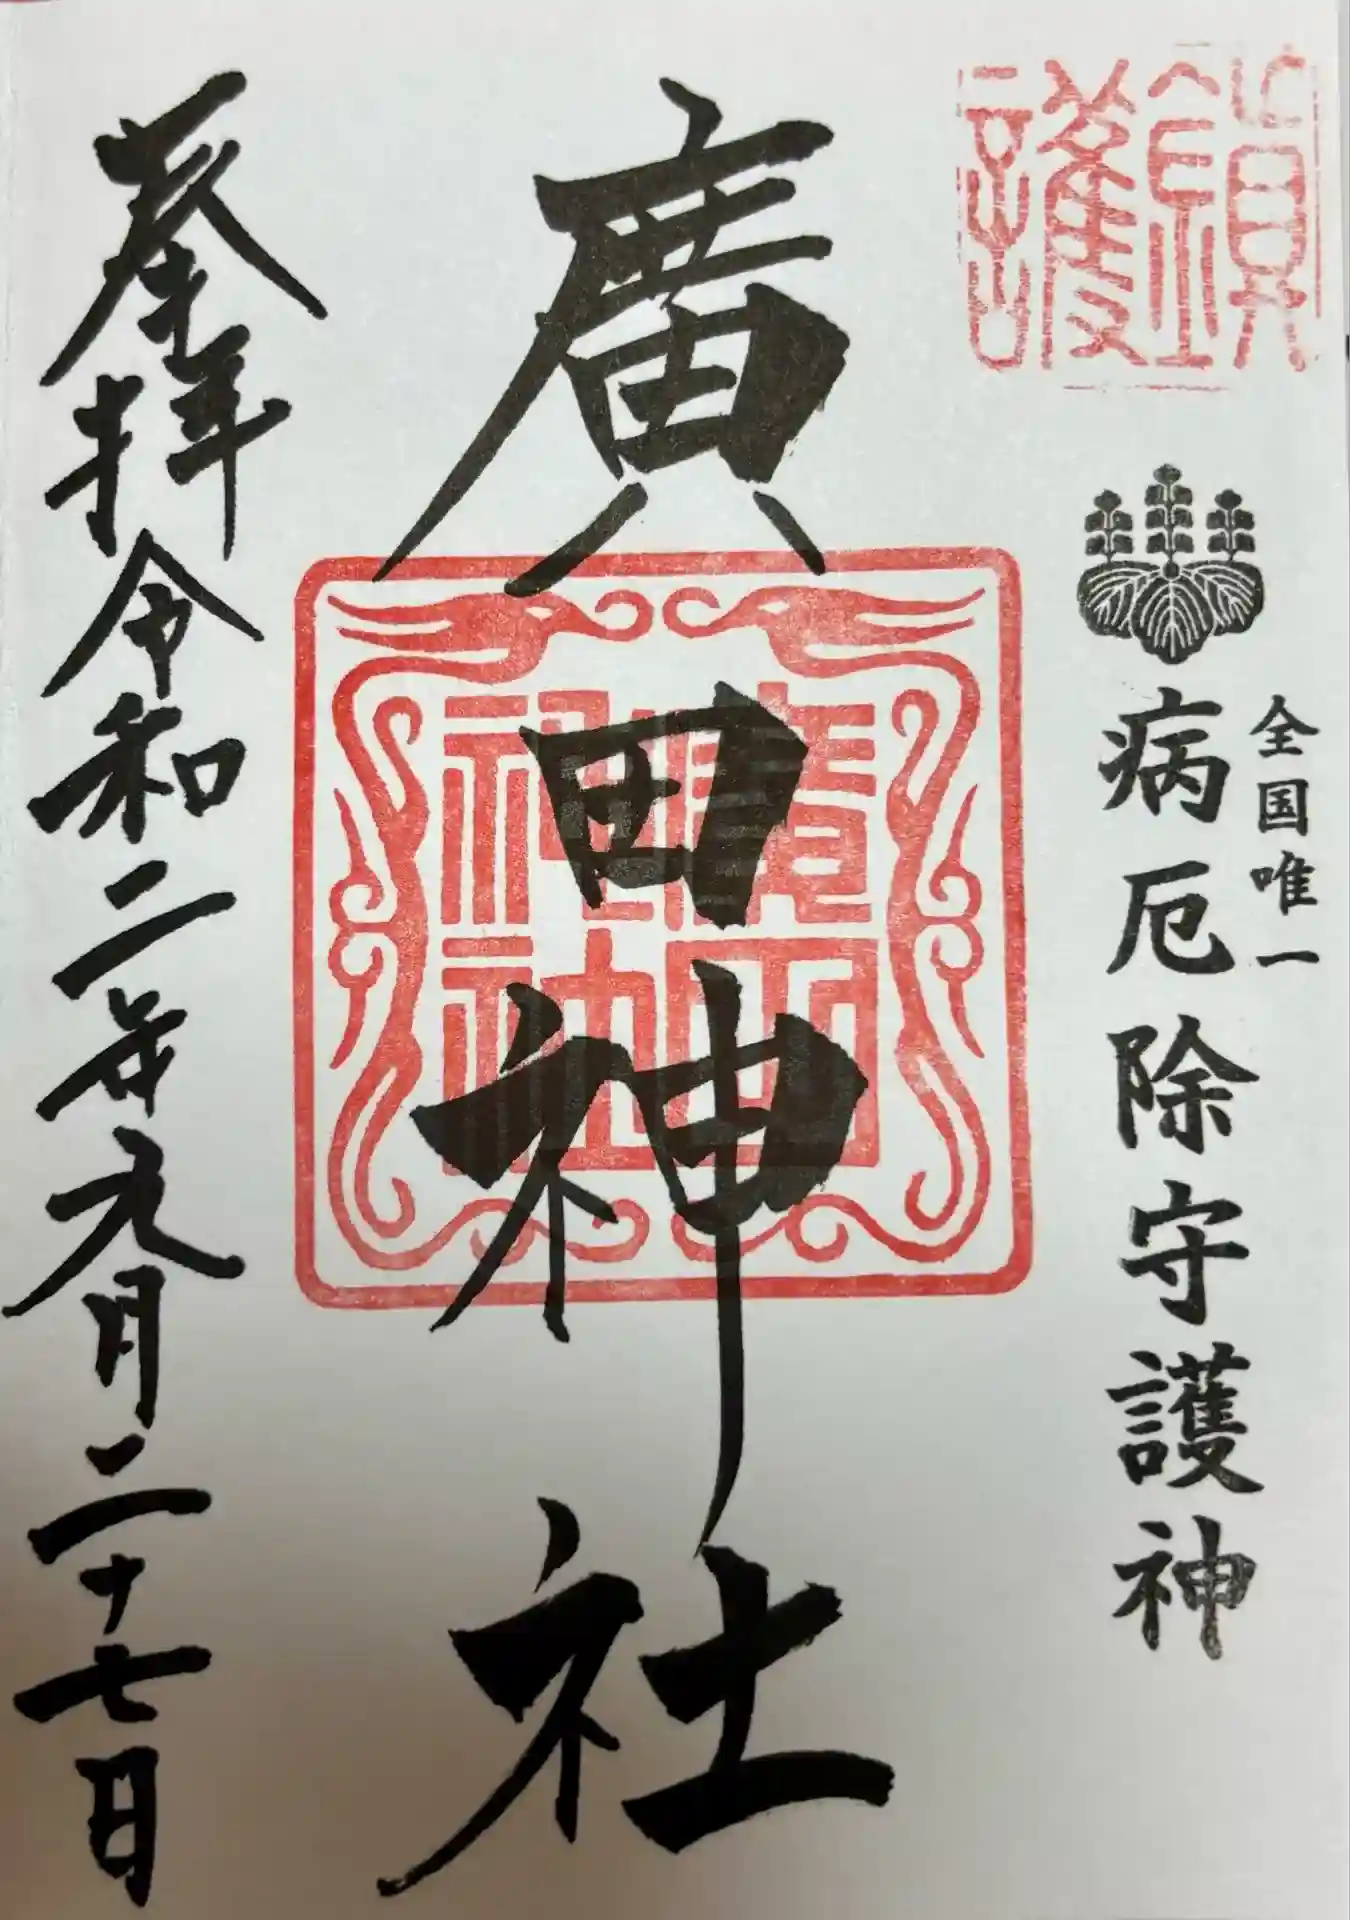 鎮護
全国唯一
病厄除守護神
廣田神社
廣田神社
奉拝
令和二年九月二十七日